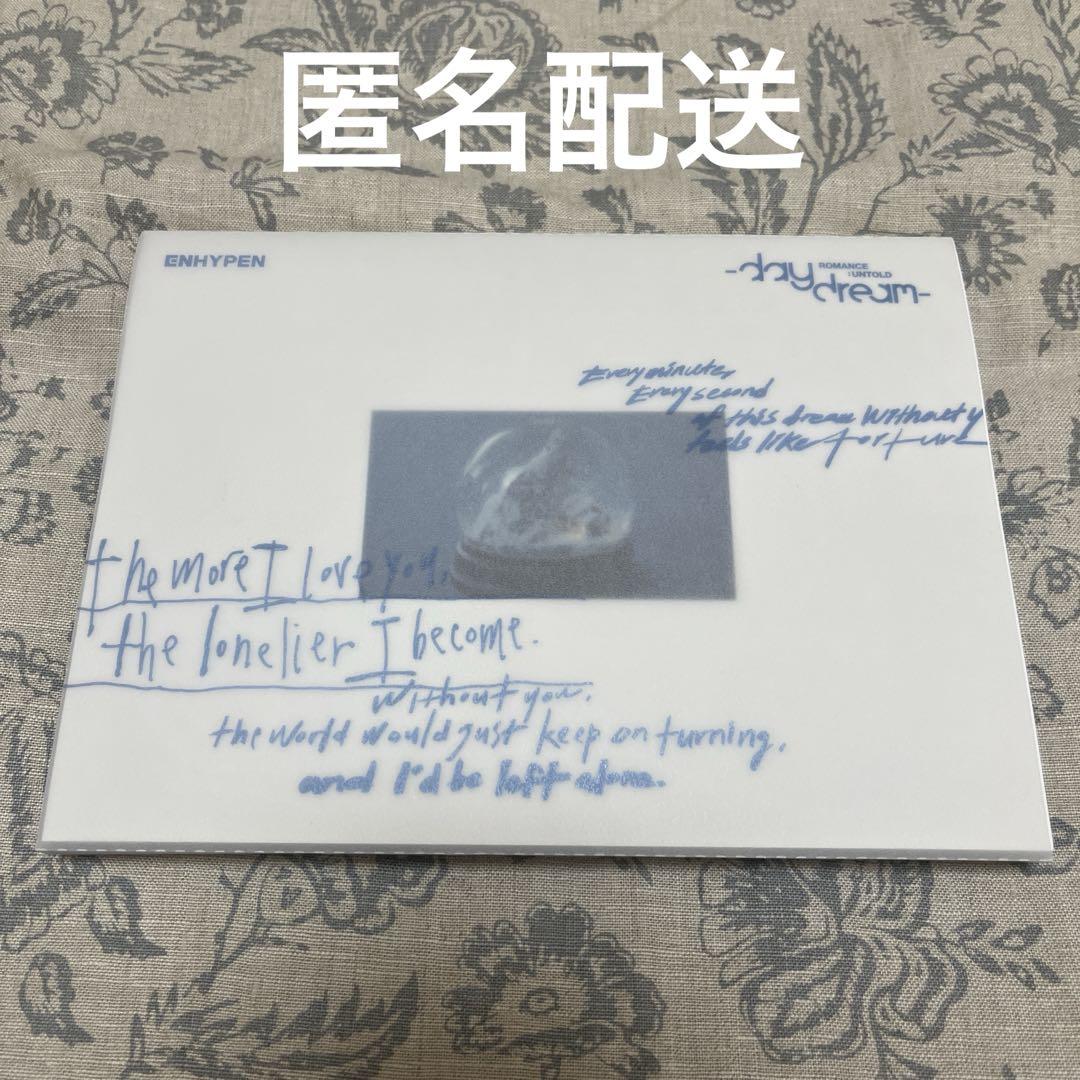 匿名配送
ENHYPEN
ROMANCE
:UNTOLD
-daydream-
Every minute,
Every second
of this dream without y
feels like torture
the more I love you,
the lonelier I become.
without you,
the world would just keep on turning,
and I'd be left alone.